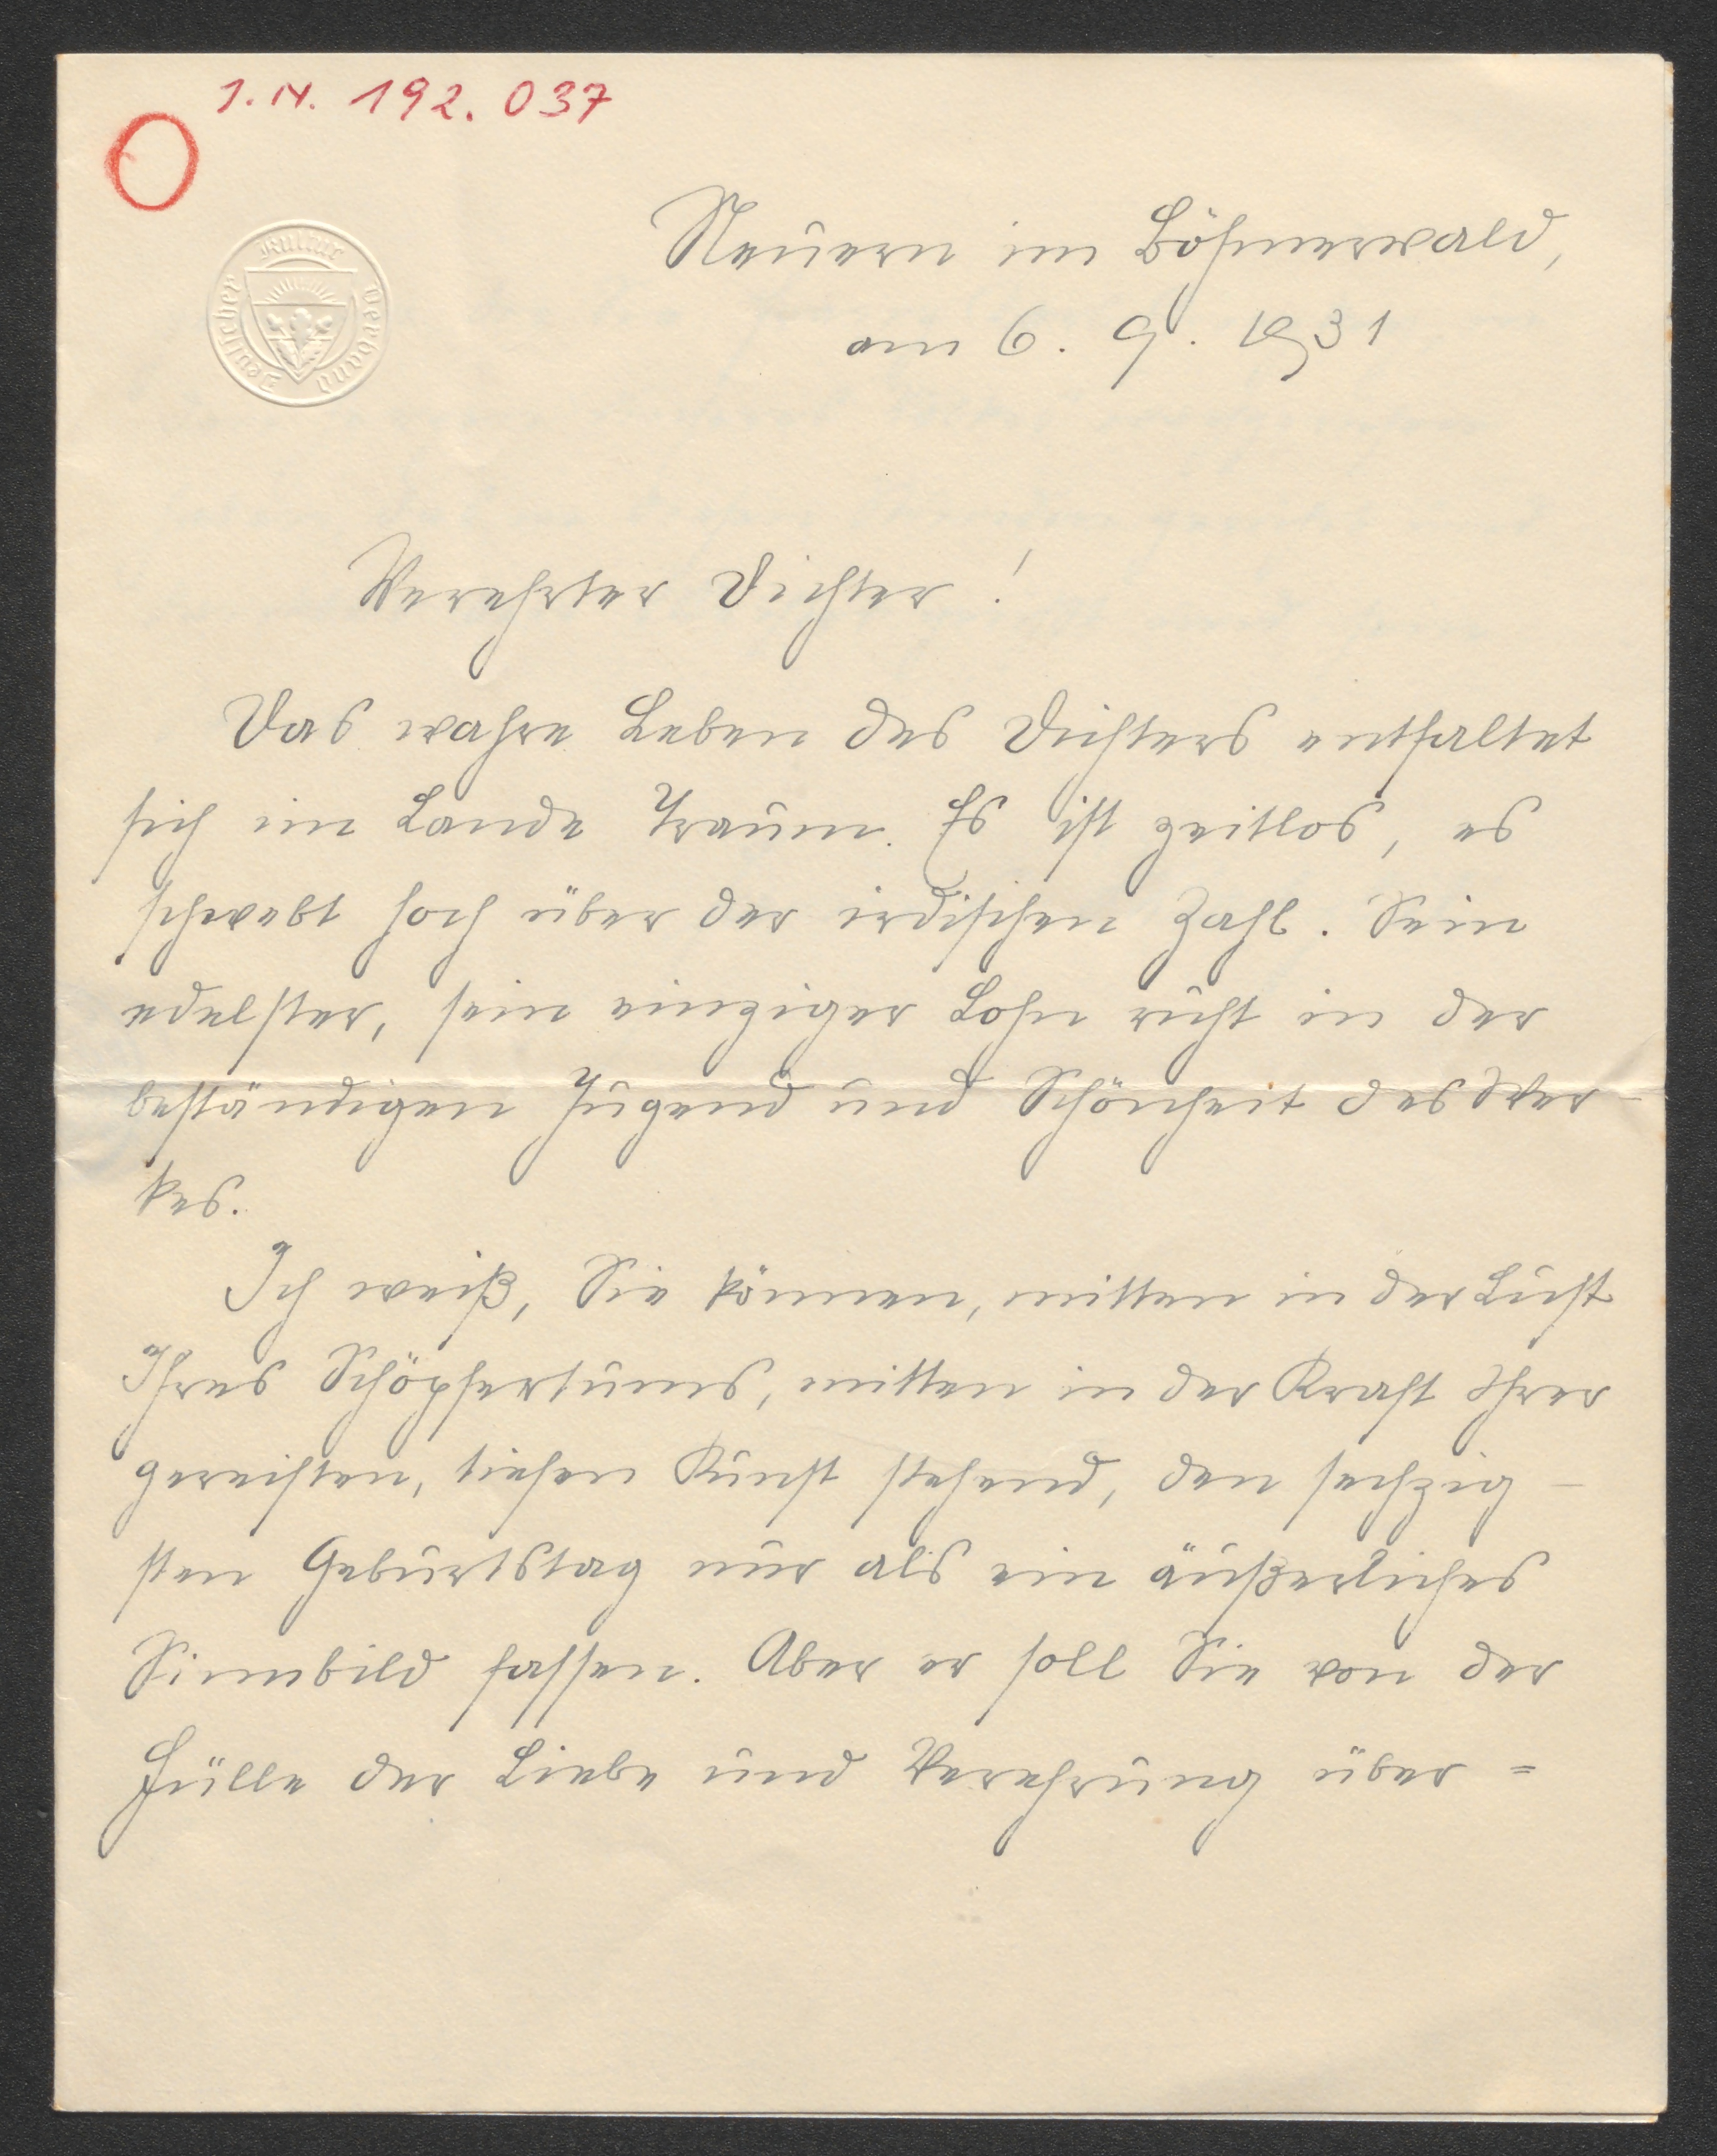 I.N. 192.037
Deutscher Kultur Verband
Neuern im Böhmerwald,
am 6. 9. 1931
Verehrter Dichter!
Das wahre Leben des Dichters entfaltet
sich im Lande Traum. Es ist zeitlos, es
schwebt hoch über der irdischen Zahl. Sein
edelster, sein einziger Lohn ruht in der
beständigen Jugend und Schönheit des Wer-
kes.
Ich weiß, Sie können, mitten in der Lust
Ihres Schöpfertums, mitten in der Kraft Ihrer
gereiften, tiefen Kunst stehend, den sechzig-
sten Geburtstag nur als ein äußerliches
Sinnbild fassen. Aber er soll Sie von der
Fülle der Liebe und Verehrung über=